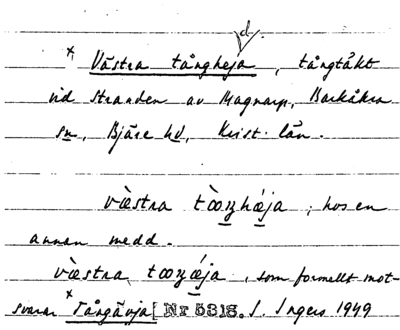 d.
x, Västra tångheja, tångtäkt
vid stranden av Magnarp, Barkåkra
sn, Bjäre hd, Krist. län.
væ̀stra tòωŋhǽja, hos en
annan medd.
væ̀stra tωωŋǽja, som formellt mot-
svarar x Tångävja [Nr 5318. I. Ingers 1949